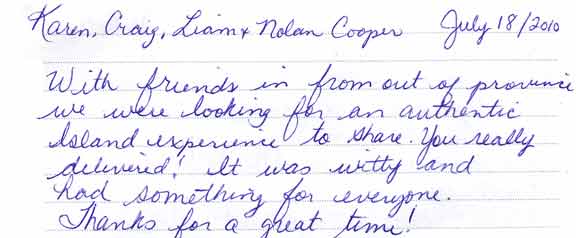 Karen, Craig, Liam + Nolan Cooper July 18/2010
With friends in from out of province
we were looking for an authentic
Island experience to share. You really
delivered! It was witty and
had something for everyone.
Thanks for a great time!